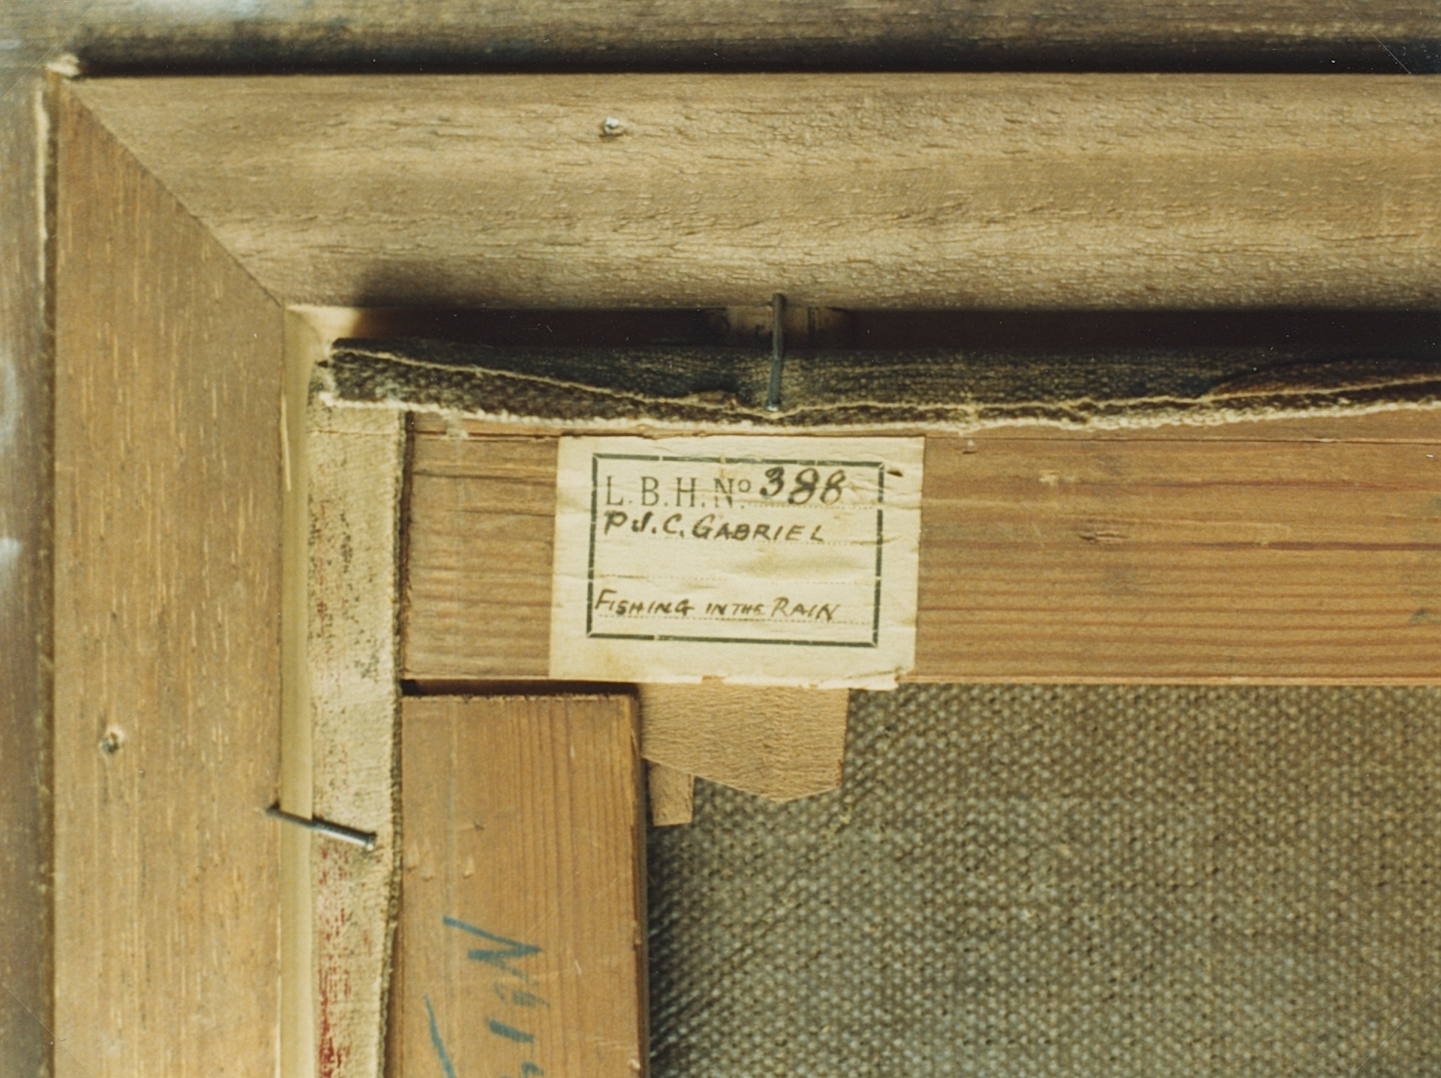 L.B.H.Nº 388
P.J.C. GABRIEL
FISHING IN THE RAIN